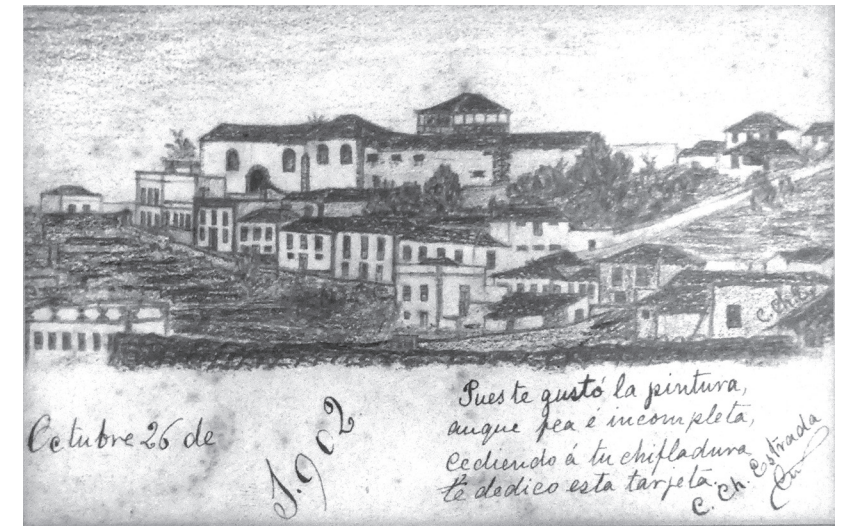 C. Ch. E.
Octubre 26 de
1.902
Pues te gustó la pintura,
auque fea é incompleta,
cediendo á tu chifladura
te dedico esta tarjeta.
C. Ch. Estrada